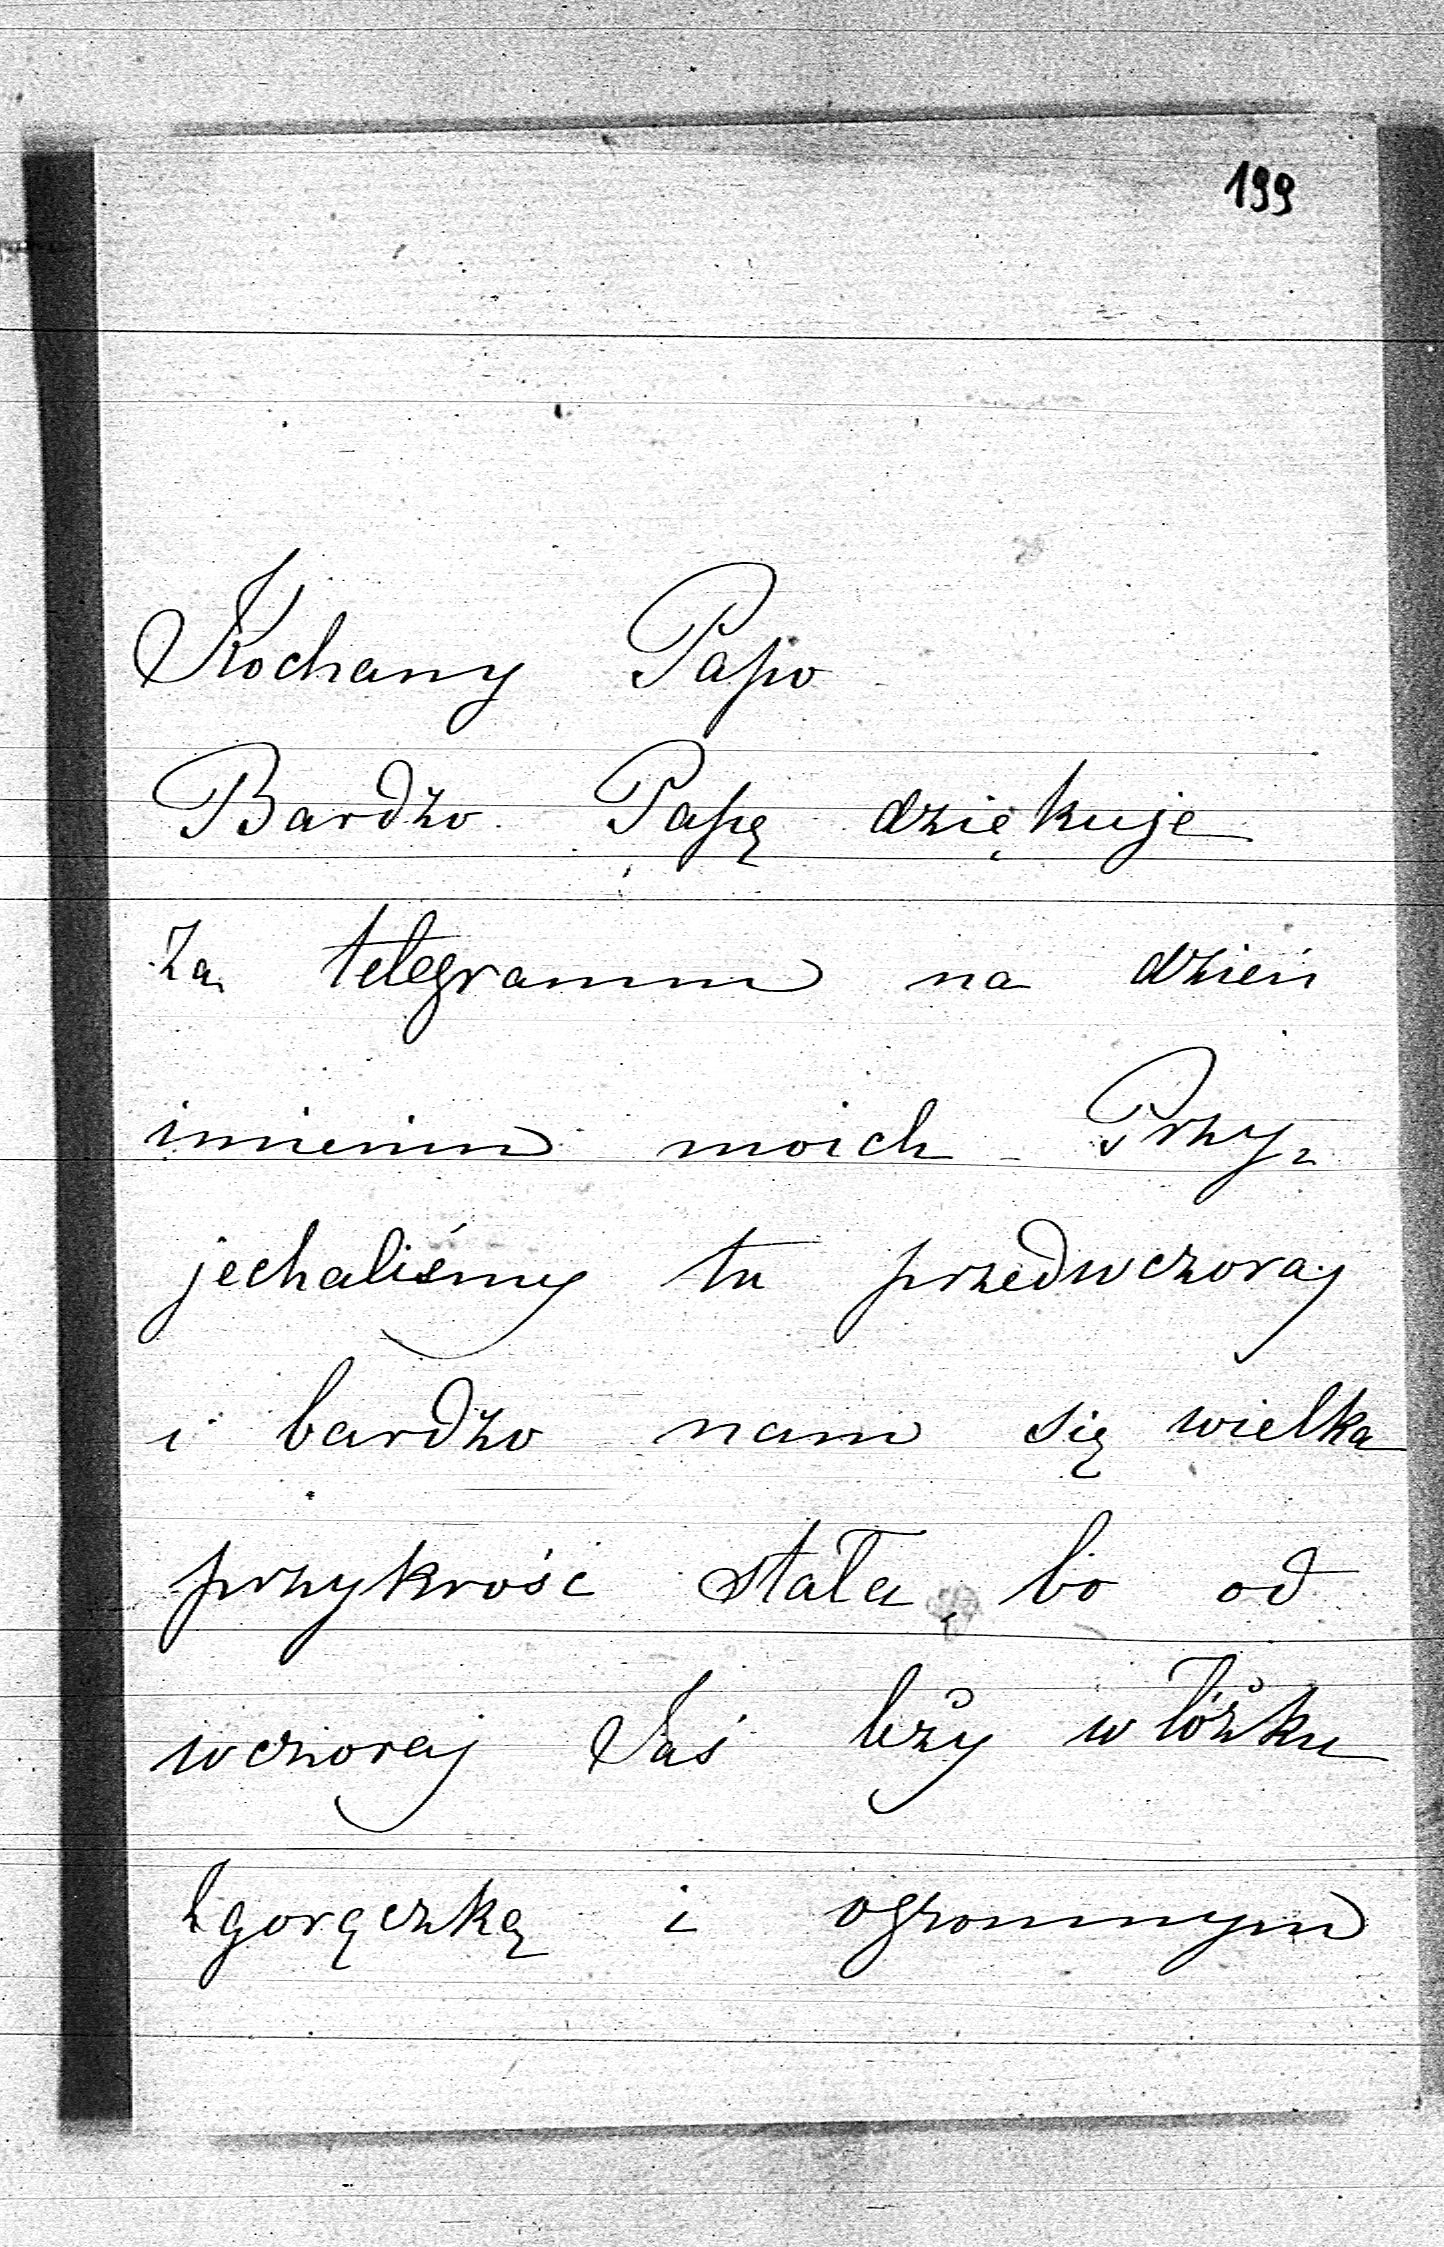 199
Kochany Papo
Bardzo Papę dziękuje
za telegramm na dzień
imienin moich - Przy-
jechaliśmy tu przedwczoraj
i bardzo nam się wielka
przykrość stała, bo od
wczoraj Jaś lży w łóżku
z gorączką i ogromnym